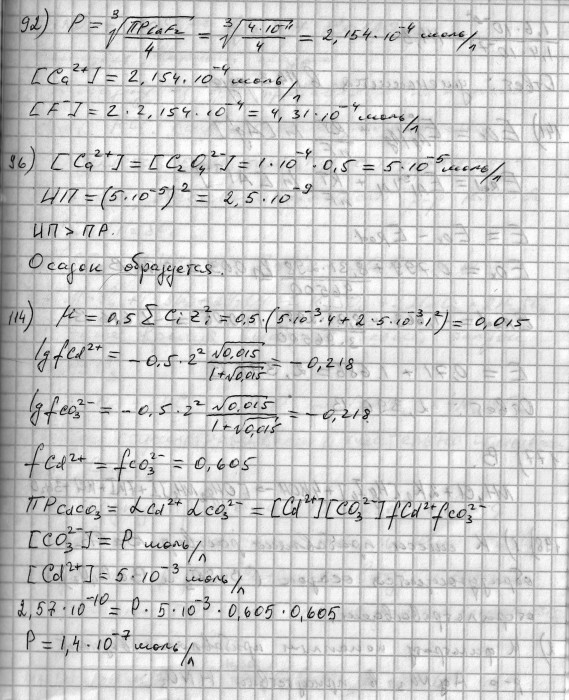 92) P = ∛(ПРCaF₂/4) = ∛(4·10⁻¹¹/4) = 2,154·10⁻⁴ моль/л
[Ca²⁺] = 2,154·10⁻⁴ моль/л
[F⁻] = 2·2,154·10⁻⁴ = 4,31·10⁻⁴ моль/л
96) [Ca²⁺] = [C₂O₄²⁻] = 1·10⁻⁴·0,5 = 5·10⁻⁵ моль/л
ИП = (5·10⁻⁵)² = 2,5·10⁻⁹
ИП > ПР.
Осадок образуется.
114) μ = 0,5 Σ Cᵢ zᵢ² = 0,5·(5·10⁻³·4 + 2·5·10⁻³·1²) = 0,015
lg fCd²⁺ = -0,5·2² √0,015/(1+√0,015) = -0,218
lg fCO₃²⁻ = -0,5·2² √0,015/(1+√0,015) = -0,218
fCd²⁺ = fCO₃²⁻ = 0,605
ПРCdCO₃ = αCd²⁺ αCO₃²⁻ = [Cd²⁺][CO₃²⁻] fCd²⁺ fCO₃²⁻
[CO₃²⁻] = P моль/л
[Cd²⁺] = 5·10⁻³ моль/л
2,57·10⁻¹⁰ = P·5·10⁻³·0,605·0,605
P = 1,4·10⁻⁷ моль/л